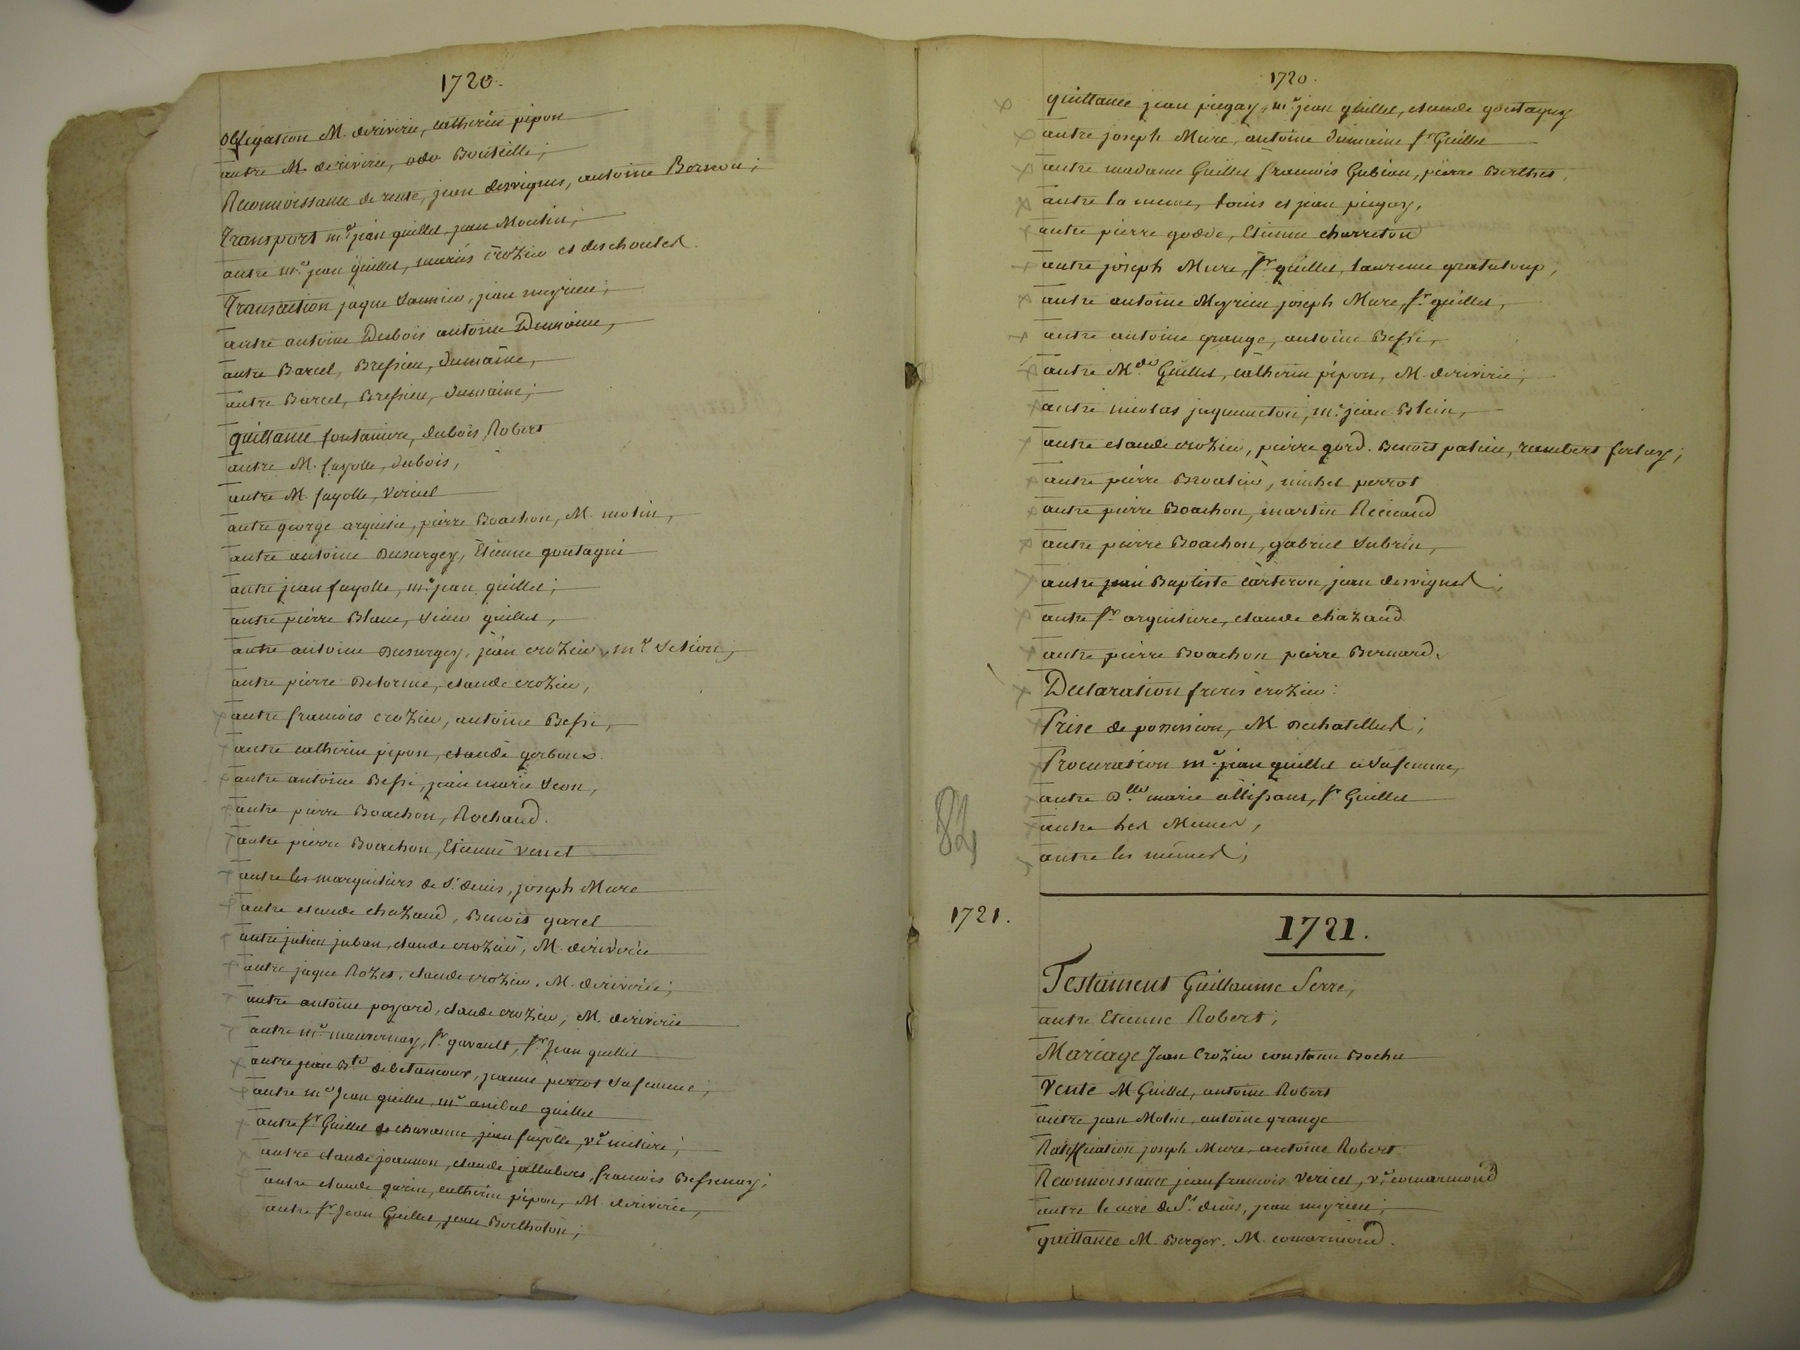 1720.
obligation M. deriverie, catherin pipon
autre M. deriverie, odo Bouteille;
Reconnoissance de rente, jean desvignes, antoine Berson;
Transport mr. jean guillet, jean Moulin;
autre mr. jean guillet, mariés croZier et deschoutes.
Transaction jaque Saunier, jean meyrieu;
autre antoine Dubois antoine Dumaine,
autre Barcel, Bressieu, dumaine,
autre Barcel, Bressieu, dumaine;
quittance fontaniere, dubois, Robert
autre M. fayolle, dubois,
autre M. fayolle, vericel
autre george arquisie, pierre Boachon, M. molin,
autre antoine Desurgey, Etienne goutagni
autre jean fayolle, mr. jean guillet;
autre pierre Blanc, sieur guillet,
autre antoine Desurgey, jean croZier, mr
autre pierre Delorme, claude croZier,
autre francois croZier, antoine Besse,
autre catherin pipon, claude gerboux.
autre antoine Besse, jean marie Seon,
autre pierre Boachon, Rochand.
autre pierre Boachon, Etienne venet
autre les marguiliers de St. denis, joseph Mure
autre claude chaZaud, Benoit garel
autre julien juban, claude croZier, M. deriverie
autre jaque RoZet, claude croZier, M. deriverie;
autre antoine poyard, claude croZier, M. deriverie
autre mr. sr. gavault, sr. Jean guillet
autre jean Bte debetancour, jeanne perrot sa femme;
autre mr. Jean guillet, mr. anibal guillet
autre sr. Guillet de chavanne, jean fayolle, ve.
autre claude joannon, claude jallabert, francois Bessenay;
autre claude garin, catherin pipon, M. deriverie,
autre sr. Jean Guillet, jean Bertholon;
1720.
quittance jean piegay, mr. jean guillet, claude goutagny
autre joseph Mure, antoine dumaine sr Guillet
autre madame Guillet francois Gubian, pierre Berthet,
autre la meme, louis et jean piegay,
autre pierre godde, Etienne charreton
autre joseph Mure, sr. guillet, laurence grataloup,
autre antoine Meyrieu joseph Mure, sr. guillet,
autre antoine grange, antoine Besse,
autre Mde Guillet, catherin pipon, M. deriverie;
autre nicolas jaquemeton, mr. jean Blein,
autre claude croZier, pierre gord. Benoit patin, rambert ferlay;
autre pierre Broalier, michel perrot
autre pierre Boachon, martin
autre pierre Boachon, gabriel subrin,
autre jean Baptiste carteron, jean desvignes;
autre sr. claude chaZaud
autre pierre Boachon pierre Bernard.
Declaration freres croZier.
Prise de possession, M. Duchatelles;
Procuration mr. jean guillet a sa femme,
autre Dlle. marie allissant, sr Guillet
autre les Memes,
autre les mêmes;
84
1721.
1721.
Testament Guillaume Serre,
autre Etienne Robert;
Mariage Jean CroZier constance Bochu
Vente M Guillet, antoine Robert
autre jean Molin, antoine grange
Ratification joseph Mure, antoine Robert
Reconnoissance jean francois vericel, ve. comarmond
autre le curé de St. denis, jean meyrieu;
quittance M. Berger. M. comarmond.